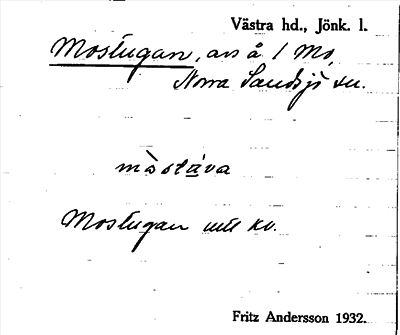 Västra hd., Jönk. l.
Mostugan, avs å 1 Mo,
Norra Sandsjö sn.
mòstǜva
Mostugan mtl kv.
Fritz Andersson 1932.